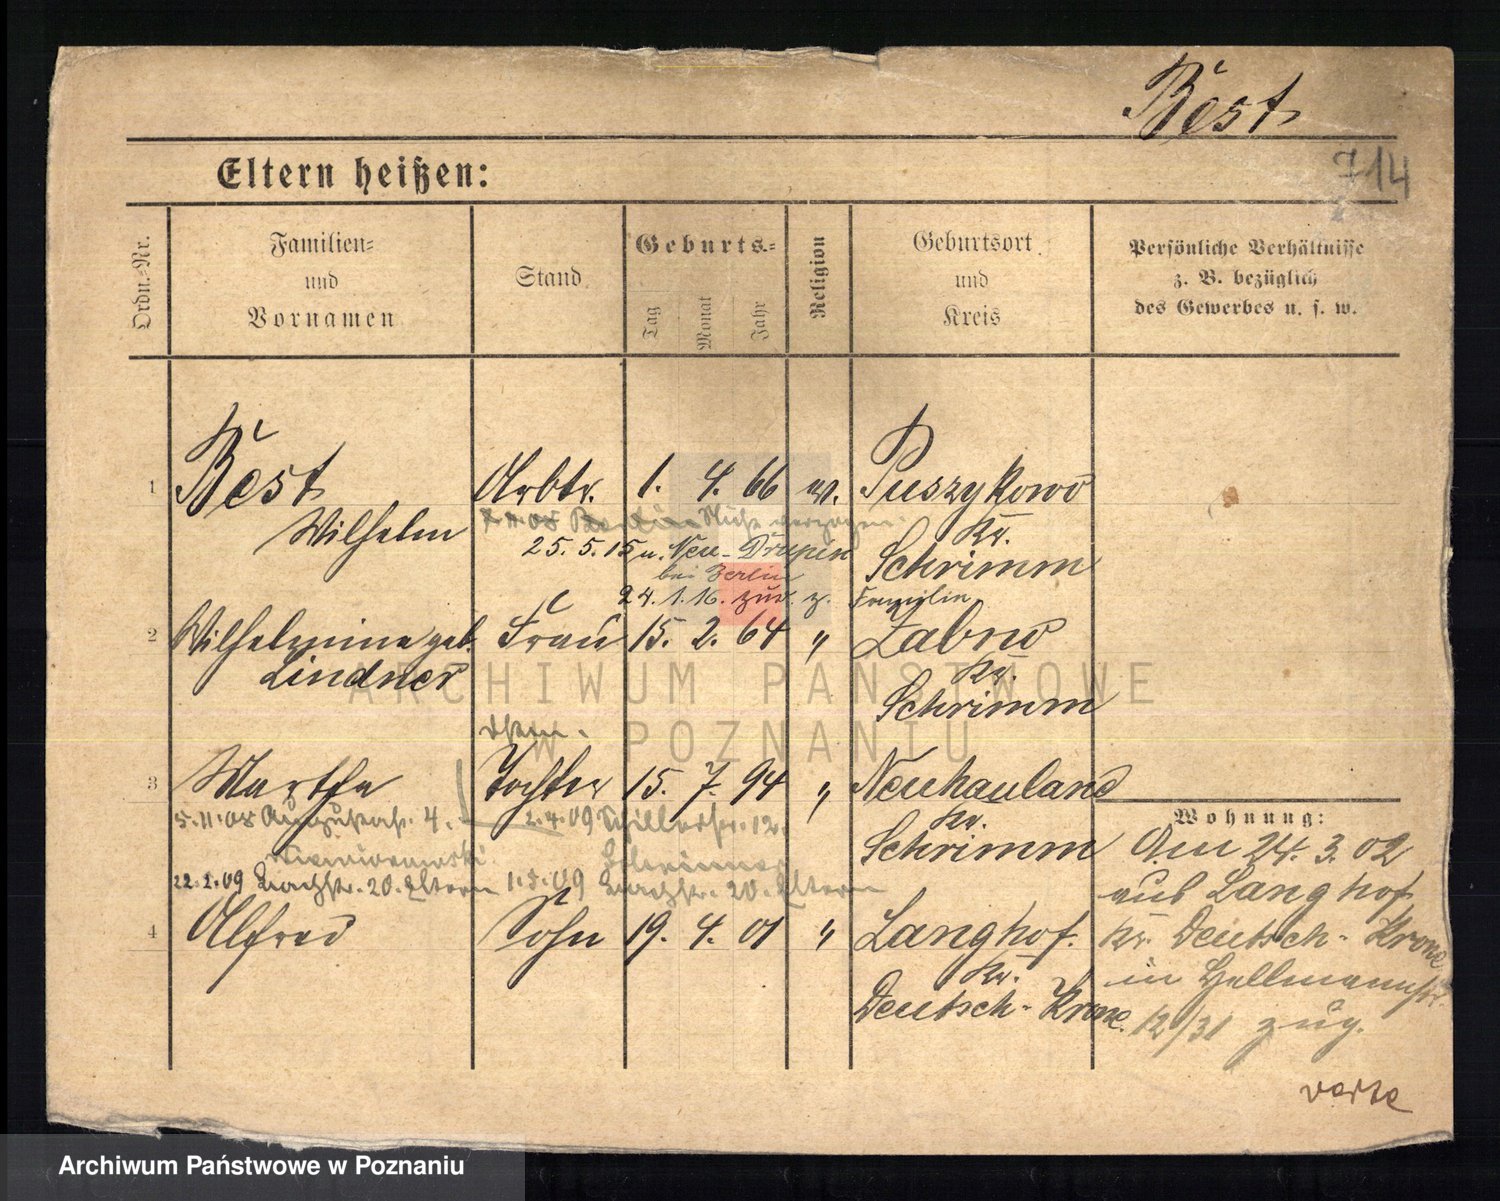 Best
714
Eltern heißen:
Ordn.-Nr.
Familien-
und
Vornamen
Stand
Geburts-
Tag
Monat
Jahr
Religion
Geburtsort
und
Kreis
Persönliche Verhältnisse
z. B. bezüglich
des Gewerbes u. s. w.
1 Best Arbtr. 1. 4. 66 ev. Puszykowo
Wilhelm Kr.
Schrimm
25.5.15 n. Neu-
bei Berlin
24.1.16. zur. z. Familie
2 Wilhelmine geb. Frau 15. 2. 64 " Zabno
Lindner Kr.
Schrimm
3 Martha Tochter 15. 7. 94 " Neuhauland
Kr.
Schrimm
5.11.08 Augustastr. 4. 2.4.09 Schillerstr. 12.
22.2.09 Bachstr. 20. Eltern 1.5.09 Bachstr. 20. Eltern
4 Alfred Sohn 19. 4. 01 " Langhof.
Kr.
Deutsch-Krone.
Wohnung:
Am 24. 3. 02
aus Langhof
Kr. Deutsch-Krone
in Hellmannstr.
12/31 zug.
verte
ARCHIWUM PAŃSTWOWE
W POZNANIU
Archiwum Państwowe w Poznaniu